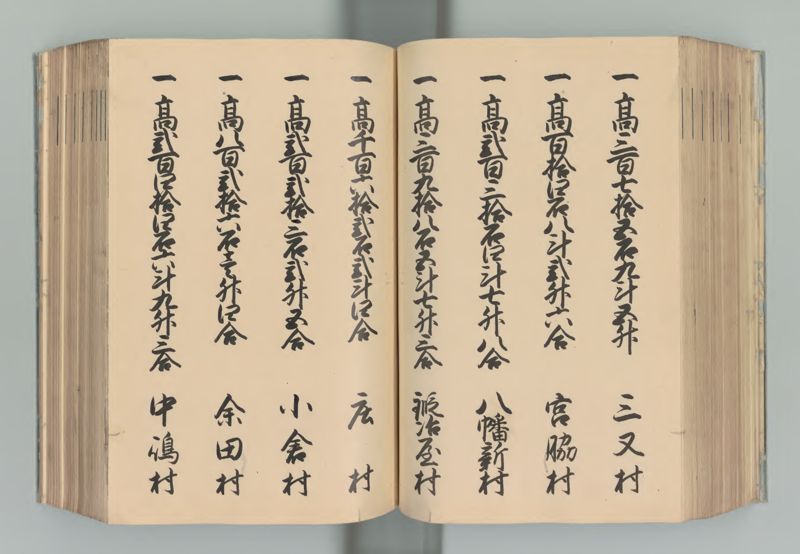 一高三百七拾五石九斗五升 三又村
一高百拾四石八斗弐升六合 宮脇村
一高弐百三拾石四斗七升八合 八幡新村
一高三百九拾八石五斗七升三合 鍛冶屋村
一高千百六拾弐石弐斗四合 庄村
一高弐百弐拾三石弐升五合 小倉村
一高八百弐拾六石壱升四合 余田村
一高弐百四拾四石六斗九升三合 中嶋村